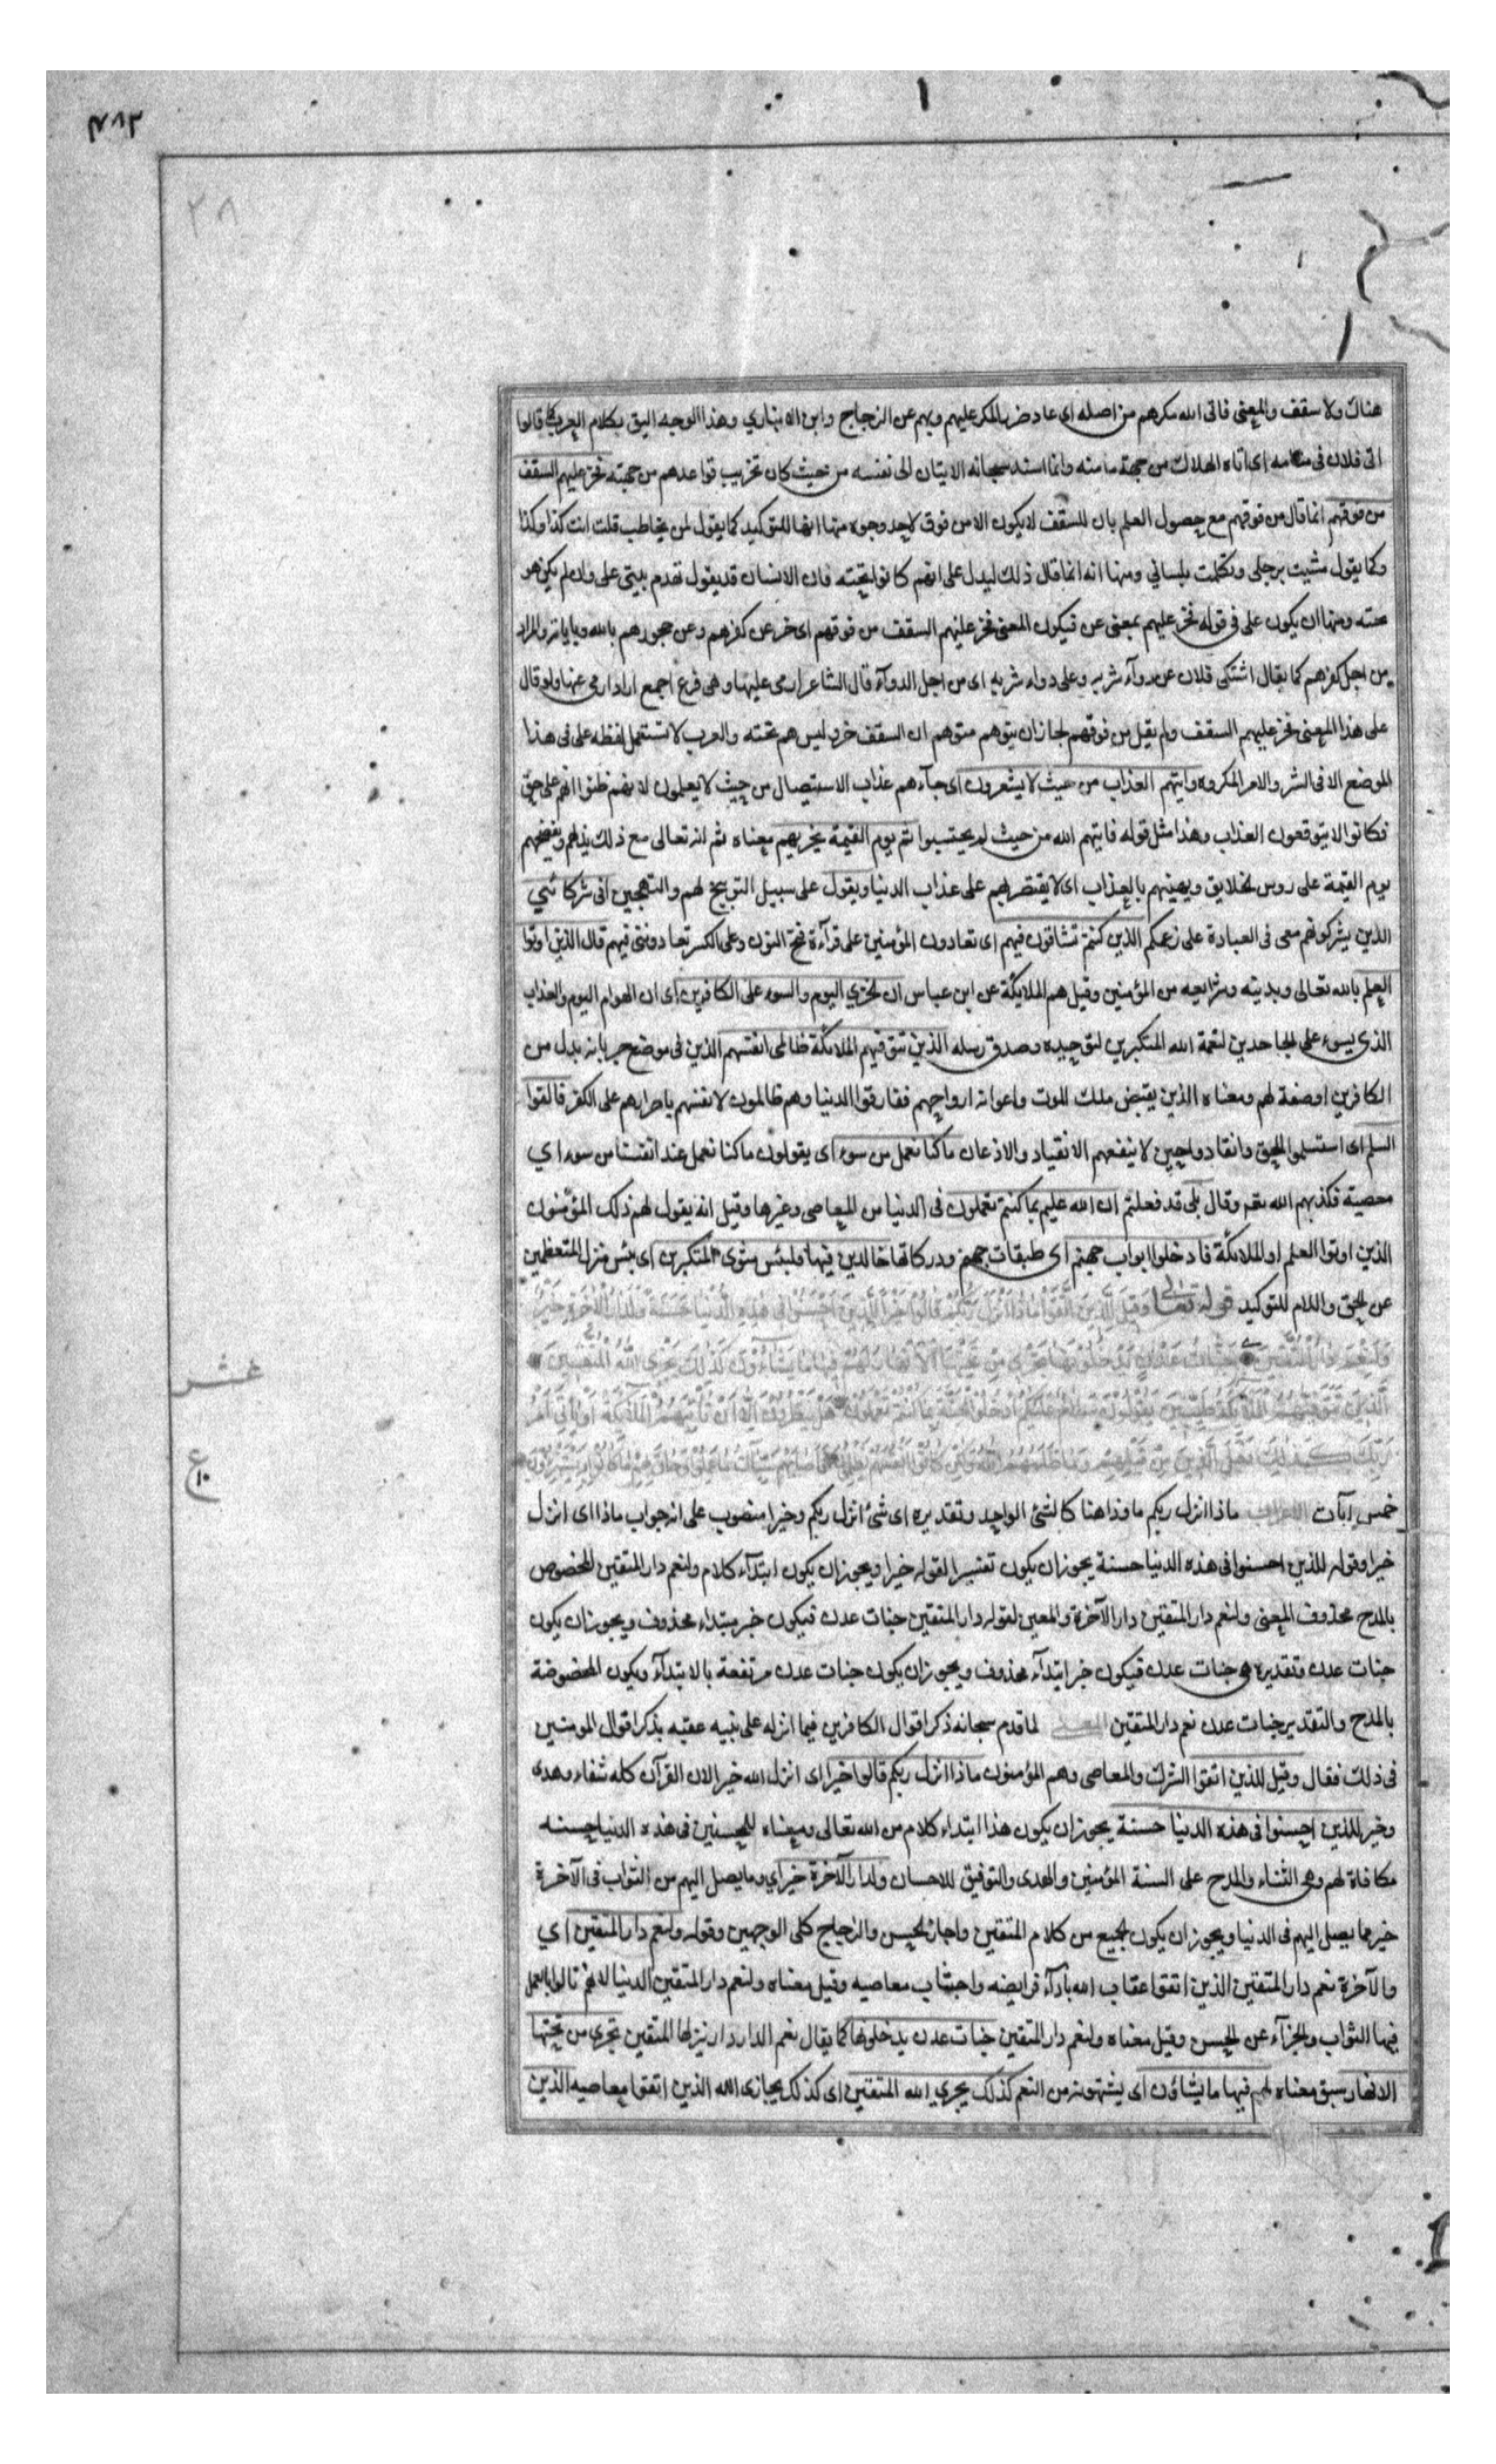 ٤٨٢
٢٨
هناك ولا سقف والمعنى فاتى الله مكرهم من اصله اى عاد ضرر المكر عليهم وبهم عن الزجاج وابن الانباري وهذا الوجه اليق بكلام العرب كما قالوا
اتى فلان فى مأمنه اى اتاه الهلاك من جهة مامنه وانما اسند سبحانه الاتيان الى نفسه من حيث كان تخريب قواعدهم من جهته فخر عليهم السقف
من فوقهم انما قال من فوقهم مع حصول العلم بان السقف لا يكون الا من فوق لاحد وجوه منها انها للتوكيد كما يقول لمن يخاطب قلت انت كذا وكذا
وكما يقول مشيت برجلى وتكلمت بلساني ومنها انه انما قال ذلك ليدل على انهم كانوا تحته فان الانسان قد يقول تهدم بيتى على وان لم يكن هو
تحته ومنها ان يكون على فى قوله فخر عليهم بمعنى عن فيكون المعنى فخر عليهم السقف من فوقهم اى خر عن كفرهم وعن جحودهم بالله وباياته والمراد
من اجل كفرهم كما يقال اشتكى فلان عن دوآء شربه وعلى دواء شربه اى من اجل الدوآء قال الشاعر ارمى عليها وهى فرع اجمع اراد ارمى عنها ولو قال
على هذا المعنى فخر عليهم السقف ولم يقل من فوقهم لجاز ان يتوهم متوهم ان السقف خر وليس هم تحته والعرب لا تستعمل لفظه على فى هذا
الموضع الا فى الشر والامر المكروه واتيهم العذاب من حيث لا يشعرون اى جآءهم عذاب الاستيصال من حيث لا يعلمون لانهم ظنوا انهم على حق
فكانوا لا يتوقعون العذاب وهذا مثل قوله فاتيهم الله من حيث لم يحتسبوا ثم يوم القيمة يخزيهم معناه ثم انه تعالى مع ذلك يذلهم ويفضحهم
يوم القيمة على روس الخلايق ويهينهم بالعذاب اى لا يقتصر بهم على عذاب الدنيا ويقول على سبيل التوبيخ لهم والتهجين اين شركائى
الذين يشركونهم معى فى العبادة على زعمكم الذين كنتم تشاقون فيهم اى تعادون المؤمنين على قرآءة فتح النون وعلى الكسر تعادوننى فيهم قال الذين اوتوا
العلم بالله تعالى وبدينه وشرايعه من المؤمنين وقيل هم الملايكة عن ابن عباس ان الخزي اليوم والسوء على الكافرين اى ان الهوان اليوم والعذاب
الذى يسوء على الجاحدين لنعمة الله المتكبرين لتوحيده وصدق رسله الذين تتوفيهم الملائكة ظالمى انفسهم الذين فى موضع جر بانه بدل من
الكافرين او صفة لهم ومعناه الذين يقبض ملك الموت واعوانه ارواحهم ففارقوا الدنيا وهم ظالمون لانفسهم باصرارهم على الكفر فالقوا
السلم اى استسلموا للحق وانقادوا حين لا ينفعهم الانقياد والاذعان ما كنا نعمل من سوء اى يقولون ما كنا نعمل عند انفسنا من سوء اي
معصية فكذبهم الله تعم وقال بلى قد فعلتم ان الله عليم بما كنتم تعملون فى الدنيا من المعاصى وغيرها وقيل انه يقول لهم ذلك المؤمنون
الذين اوتوا العلم او الملائكة فادخلوا ابواب جهنم اى طبقات جهنم ودركاتها خالدين فيها فلبئس مثوى المتكبرين اى بئس منزل المتعظمين
عن الحق واللام للتوكيد قوله تعالى وَقِيلَ لِلَّذِينَ اتَّقَوْا مَاذَا أَنْزَلَ رَبُّكُمْ قَالُوا خَيْرًا لِلَّذِينَ أَحْسَنُوا فِى هَذِهِ الدُّنْيَا حَسَنَةٌ وَلَدَارُ الْآخِرَةِ خَيْرٌ
وَلَنِعْمَ دَارُ الْمُتَّقِينَ جَنَّاتُ عَدْنٍ يَدْخُلُونَهَا تَجْرِى مِنْ تَحْتِهَا الْأَنْهَارُ لَهُمْ فِيهَا مَا يَشَاءُونَ كَذَلِكَ يَجْزِى اللهُ الْمُتَّقِينَ
الَّذِينَ تَتَوَفَّيهُمُ الْمَلَائِكَةُ طَيِّبِينَ يَقُولُونَ سَلَامٌ عَلَيْكُمُ ادْخُلُوا الْجَنَّةَ بِمَا كُنْتُمْ تَعْمَلُونَ هَلْ يَنْظُرُونَ إِلَّا أَنْ تَأْتِيَهُمُ الْمَلَائِكَةُ أَوْ يَأْتِىَ أَمْرُ
رَبِّكَ كَذَلِكَ فَعَلَ الَّذِينَ مِنْ قَبْلِهِمْ وَمَا ظَلَمَهُمُ اللهُ وَلَكِنْ كَانُوا أَنْفُسَهُمْ يَظْلِمُونَ فَأَصَابَهُمْ سَيِّئَاتُ مَا عَمِلُوا وَحَاقَ بِهِمْ مَا كَانُوا بِهِ يَسْتَهْزِؤُنَ
عشر
ع ١٠
خمس آيات الاعراب ماذا انزل ربكم ماذا هنا كالشئ الواحد وتقديره اى شئ انزل ربكم وخيرا منصوب على انه جواب ماذا اى انزل
خيرا وقوله للذين احسنوا فى هذه الدنيا حسنة يجوز ان يكون تفسيرا لقوله خيرا ويجوز ان يكون ابتدآء كلام ولنعم دار المتقين المخصوص
بالمدح محذوف المعنى ولنعم دار المتقين دار الآخرة والمعين لقوله دار المتقين جنات عدن فيكون خبر مبتداء محذوف ويجوز ان يكون
جنات عدن وتقديره هى جنات عدن فيكون خبر ابتدآء محذوف ويجوز ان يكون جنات عدن مرتفعة بالابتدآء ويكون المخصوصة
بالمدح والتقدير جنات عدن نعم دار المتقين المعنى لما قدم سبحانه ذكر اقوال الكافرين فيما انزله على نبيه عقبه بذكر اقوال المومنين
فى ذلك فقال وقيل للذين اتقوا الشرك والمعاصى وهم المؤمنون ماذا انزل ربكم قالوا خيرا اى انزل الله خيرا لان القرآن كله شفاء وهدى
وخير للذين احسنوا فى هذه الدنيا حسنة يجوز ان يكون هذا ابتداء كلام من الله تعالى ومعناه للمحسنين فى هذه الدنيا حسنه
مكافاة لهم وهى الثناء والمدح على السنة المؤمنين والهدى والتوفيق للاحسان ولدار الآخرة خير اي وما يصل اليهم من الثواب فى الآخرة
خير مما يصل اليهم فى الدنيا ويجوز ان يكون الجميع من كلام المتقين واجاز الحسن والزجاج كلى الوجهين وقوله ولنعم دار المتقين اي
والآخرة نعم دار المتقين الذين اتقوا عقاب الله بادآء فرايضه واجتناب معاصيه وقيل معناه ولنعم دار المتقين الدنيا لانهم نالوا بالعمل
فيها الثواب والجزآء عن الحسن وقيل معناه ولنعم دار المتقين جنات عدن يدخلونها كما يقال نعم الدار دار ينزلها المتقين تجري من تحتها
الانهار سبق معناه لهم فيها ما يشاؤن اى يشتهونه من النعم كذلك يجزي الله المتقين اى كذلك يجازى الله الذين اتقوا معاصيه الذين